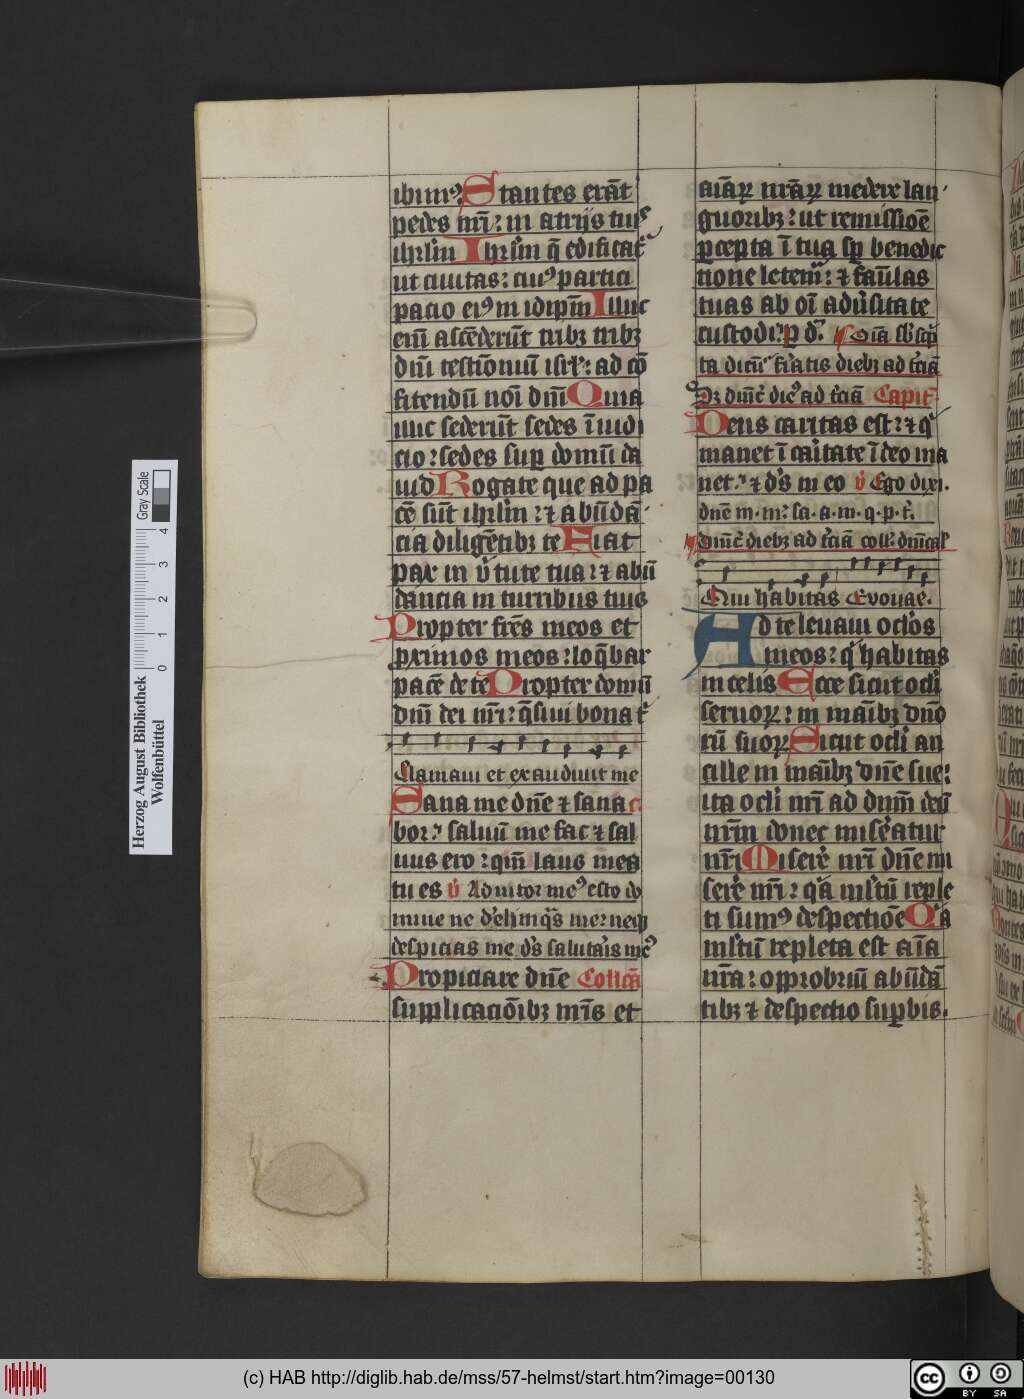 ibimꝰ Stantes erāt
pedes nr̄i: in atrijs tuis
ihrl̄m Ihrl̄m q̄ edificat᷑
ut ciuitas: cuiꝰ partici
pacio eiꝰ in idip̄m Illuc
eni᷑ ascēderūt tribꝫ tribꝫ
dn̄i testīoniū isrl̄: ad cō
fitendū noī dn̄i Quia
illic sederūt sedes ī iudi
cio: sedes suꝑ domū da
uid Rogate que ad pa
cē sūt ihrl̄m: ⁊ abūdā
cia diligētibꝫ te Fiat
pax in v̓tute tua: ⁊ abū
dancia in turribus tuis
Propter fr̄es meos et
ꝓximos meos: loq̄bar
pacē de te Propter domū
dn̄i dei nr̄i: q̄siui bona t᷑
Clamaui et exaudiuit me
Sana me dn̄e ⁊ sana
bor: saluū me fac ⁊ sal
uus ero: qm̄ laus mea
tu es v̓ Adiutor meꝰ esto do
mine ne d̓elinq̄s me: neqꝫ
despicias me dꝰs salutaris meꝰ
Propiciare dn̄e Collcā
supplicacōibꝫ nr̄is et
aīaꝝ nr̄aꝝ medere lan
guoribꝫ: ut remissiōe
ꝑcepta ī tua sꝑ benedic
tione letem̄: ⁊ fam̄las
tuas ab oī adūsitate
custodi: ꝑ d.
ta dicūt᷑ f̓iatis diebꝫ ad t̓ciā
dn̄ic̄ dicꝰ ad t̓ciā Capit̄
Deus caritas est: ⁊ q̓
manet ī caritate ī deo ma
net: ⁊ dꝰs in eo v̓ Ego dixi.
dn̄e m. m: sa. a. m. q. p. t̓.
Dn̄ic̄ diebꝫ ad t̓ciā coll. dn̄ical̓
Qui habitas Evouae.
Ad te leuaui oclōs
meos: q̓ habitas
in celis Ecce sicut ocl̓i
seruoꝝ: in man̄ibꝫ dn̄o
rū suoꝝ Sicut ocl̓i an
cille in man̄ibꝫ dn̄e sue:
ita ocl̓i nr̄i ad dnm̄ deū
nrm̄ donec mis̓eatur
nr̄i Miserē nr̄i dn̄e mi
serē nr̄i: q̓a ml̓tū reple
ti sumꝰ despectiōe Q̓a
ml̓tū repleta est aīa
nr̄a: opprobriū abūdā
tibꝫ ⁊ despectio suꝑbis.
Herzog August Bibliothek
Wolfenbüttel
0 1 2 3 4
Gray Scale
(c) HAB http://diglib.hab.de/mss/57-helmst/start.htm?image=00130
cc BY SA